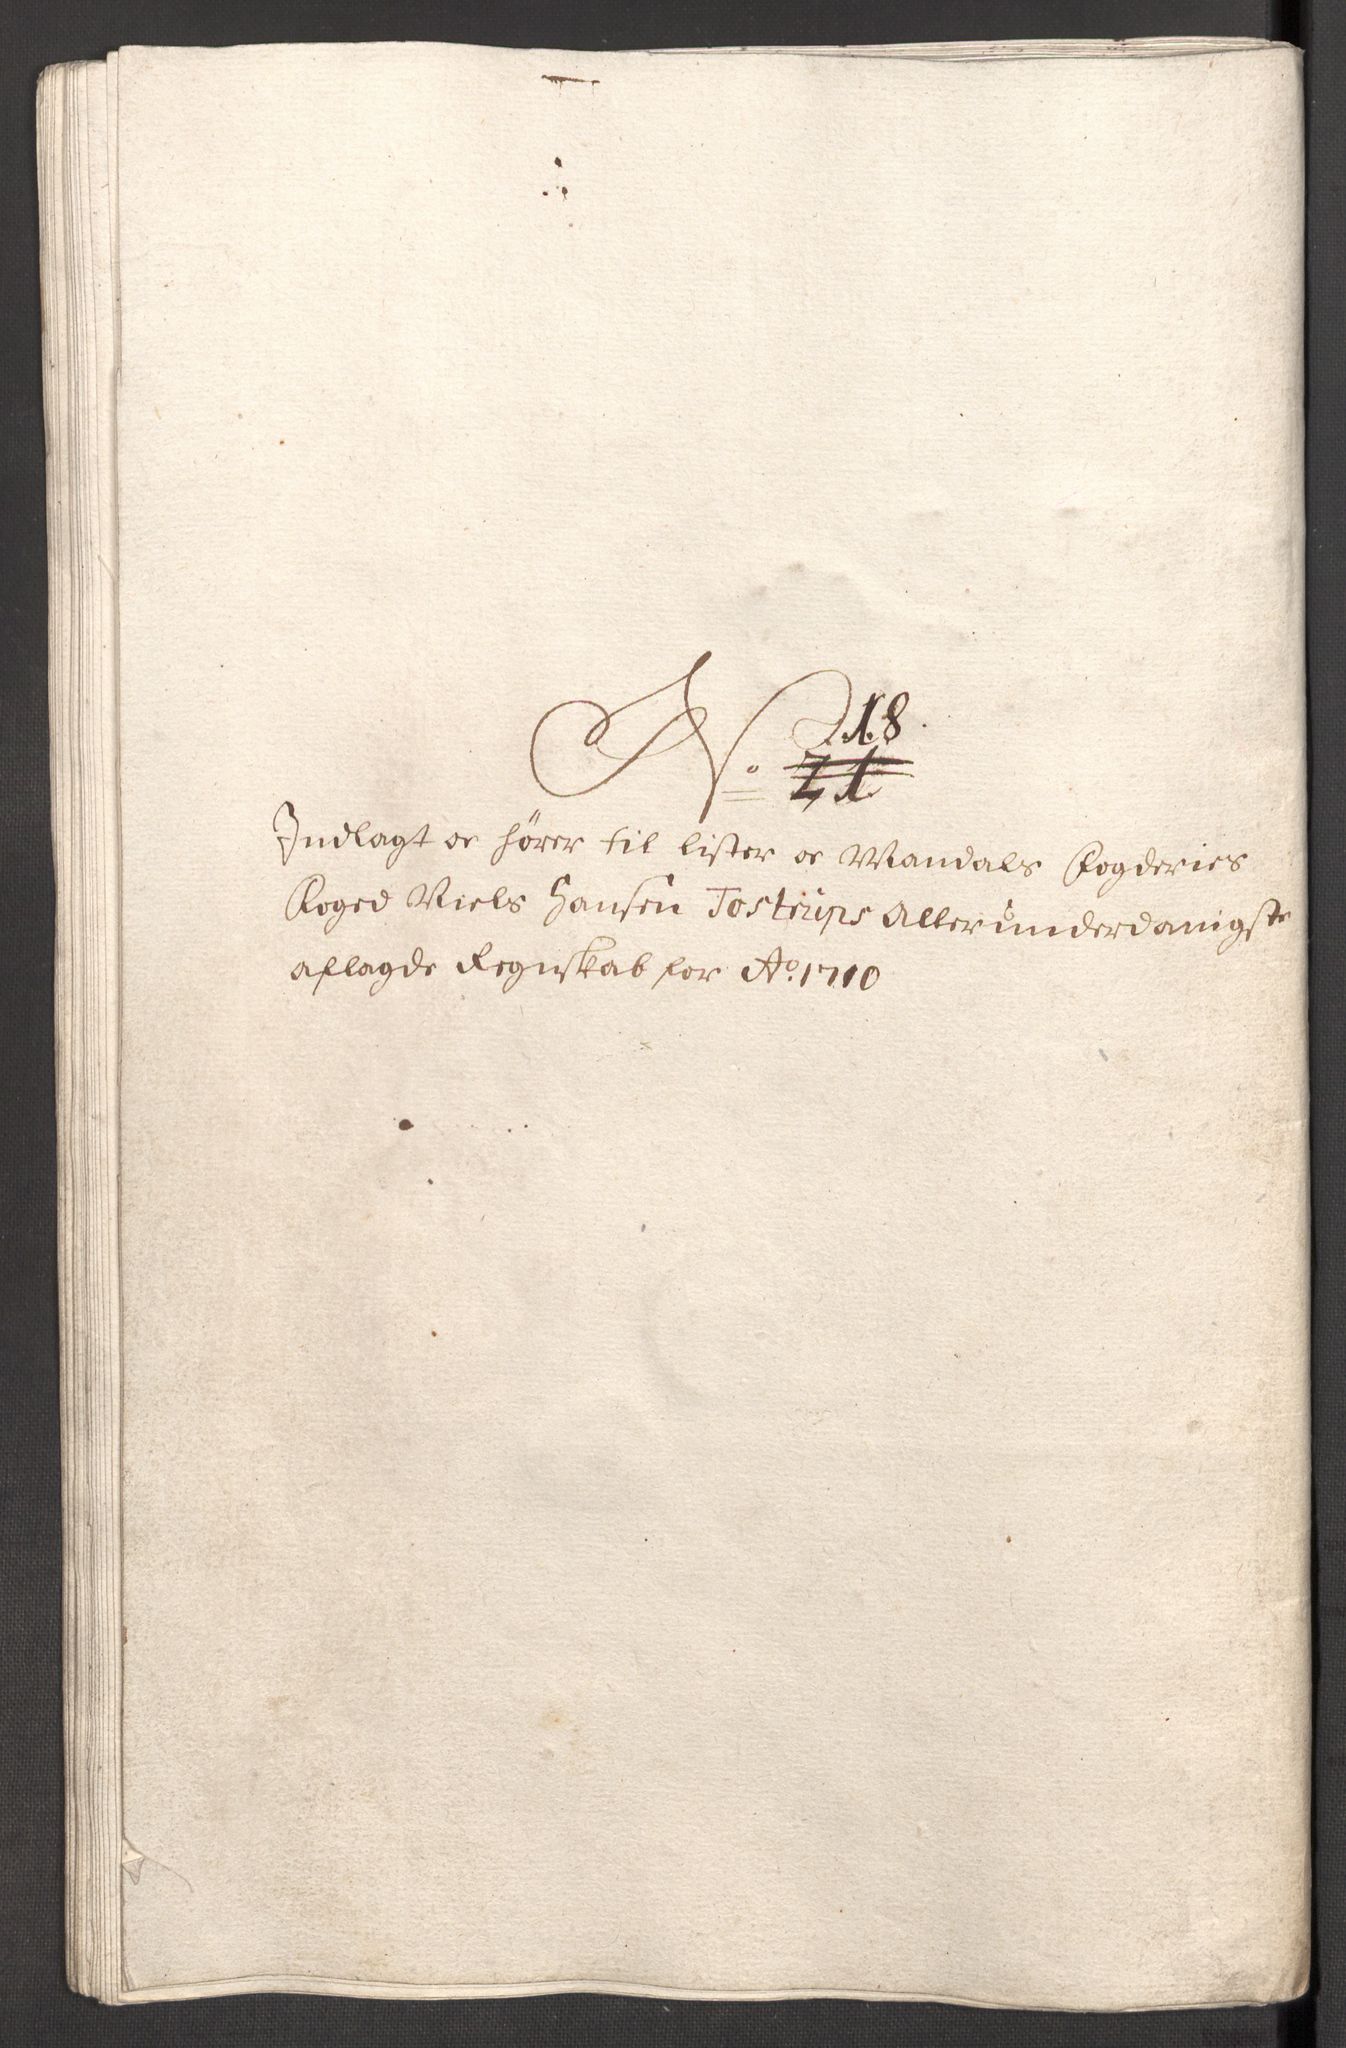 No. 18
21
Indlagt oc hører til Lister oc Mandals Fogderies
Foged Niels Hansen Tostrups Allerunderdanigste
aflagde Regnskab for Ao. 1710